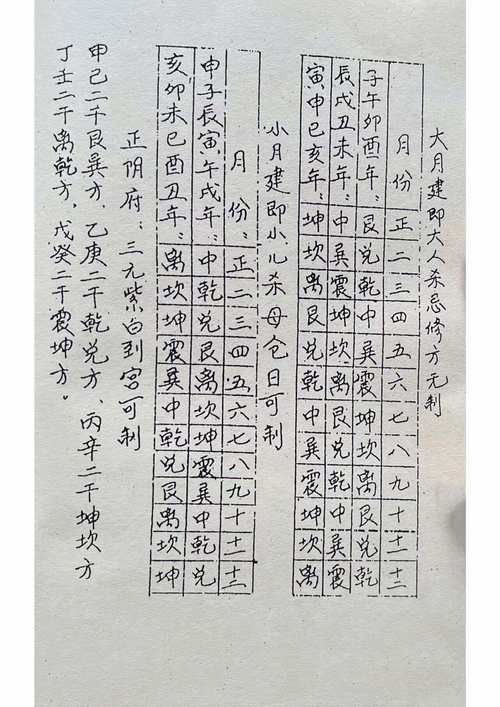 大月建即大人杀忌修方无制
月份 正 二 三 四 五 六 七 八 九 十 十一 十二
子午卯酉年： 艮 兑 乾 中 巽 震 坤 坎 离 艮 兑 乾
辰戌丑未年： 中 巽 震 坤 坎 离 艮 兑 乾 中 巽 震
寅申巳亥年： 坤 坎 离 艮 兑 乾 中 巽 震 坤 坎 离
小月建即小儿杀母仓日可制
月份： 正 二 三 四 五 六 七 八 九 十 十一 十二
申子辰寅午戌年： 中 乾 兑 艮 离 坎 坤 震 巽 中 乾 兑
亥卯未巳酉丑年： 离 坎 坤 震 巽 中 乾 兑 艮 离 坎 坤
正阴府：三元紫白到宫可制
甲己二干艮巽方、乙庚二干乾兑方、丙辛二干坤坎方
丁壬二干离乾方、戊癸二干震坤方。